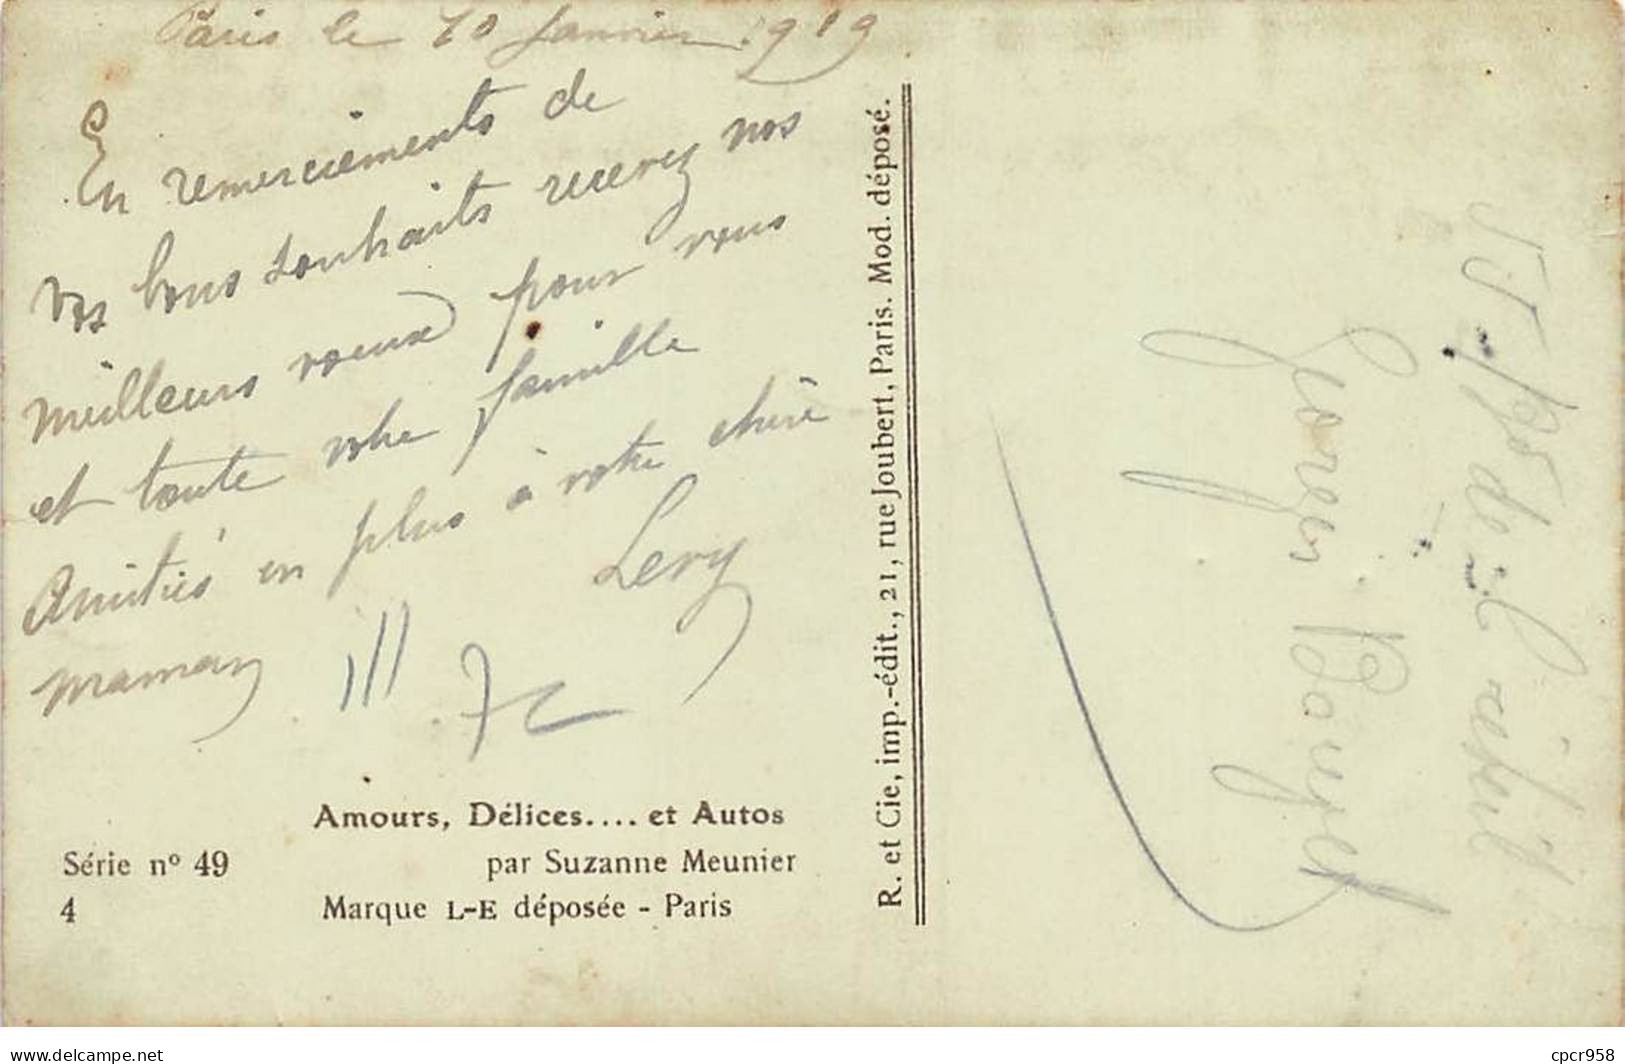 Paris le 10 Janvier 1919
En remerciements de
vos bons souhaits recevez nos
meilleurs voeux pour vous
et toute votre famille
Amitiés en plus à votre chère
maman
Levy
Amours, Délices.... et Autos
Série nº 49
par Suzanne Meunier
4
Marque L-E déposée - Paris
R. et Cie, imp.-édit., 21, rue Joubert, Paris. Mod. déposé.
de
cpcr958